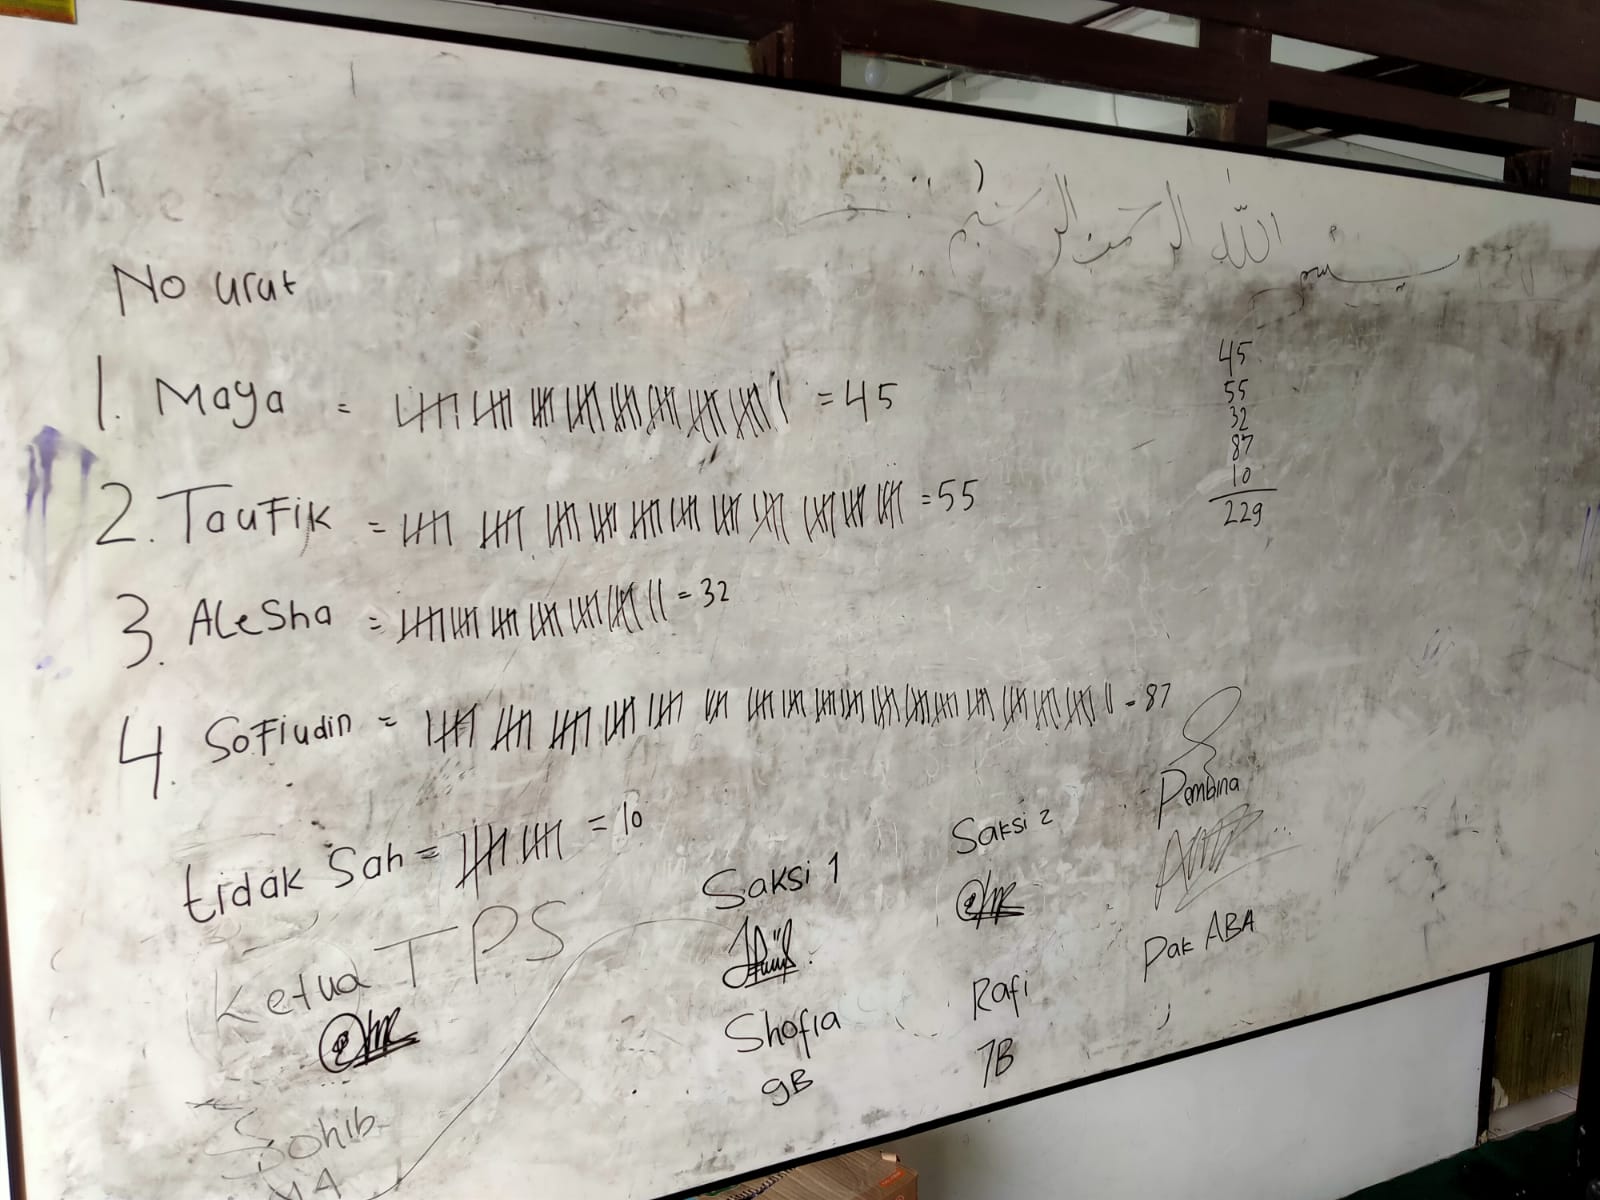 بسم الله الرحمن الرحيم
No urut
1. Maya = = 45
2. Taufik = = 55
3. Alesha = = 32
4. Sofiudin = = 87
tidak Sah = = 10
45
55
32
87
10
229
Ketua TPS
Sohib
Saksi 1
Shofia
9B
Saksi 2
Rafi
7B
Pembina
Pak ABA